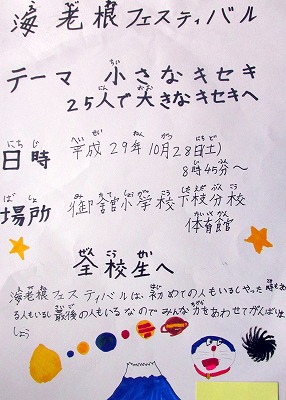 海老根フェスティバル
テーマ 小さなキセキ
25人で大きなキセキへ
日時 平成29年10月28日(土)
8時45分〜
場所 御舘小学校下枝分校
体育館
全校生へ
海老根フェスティバルは、初めての人もいるしやった時もあ
る人もいるし最後の人もいるなのでみんな力をあわせてがんばりま
しょう